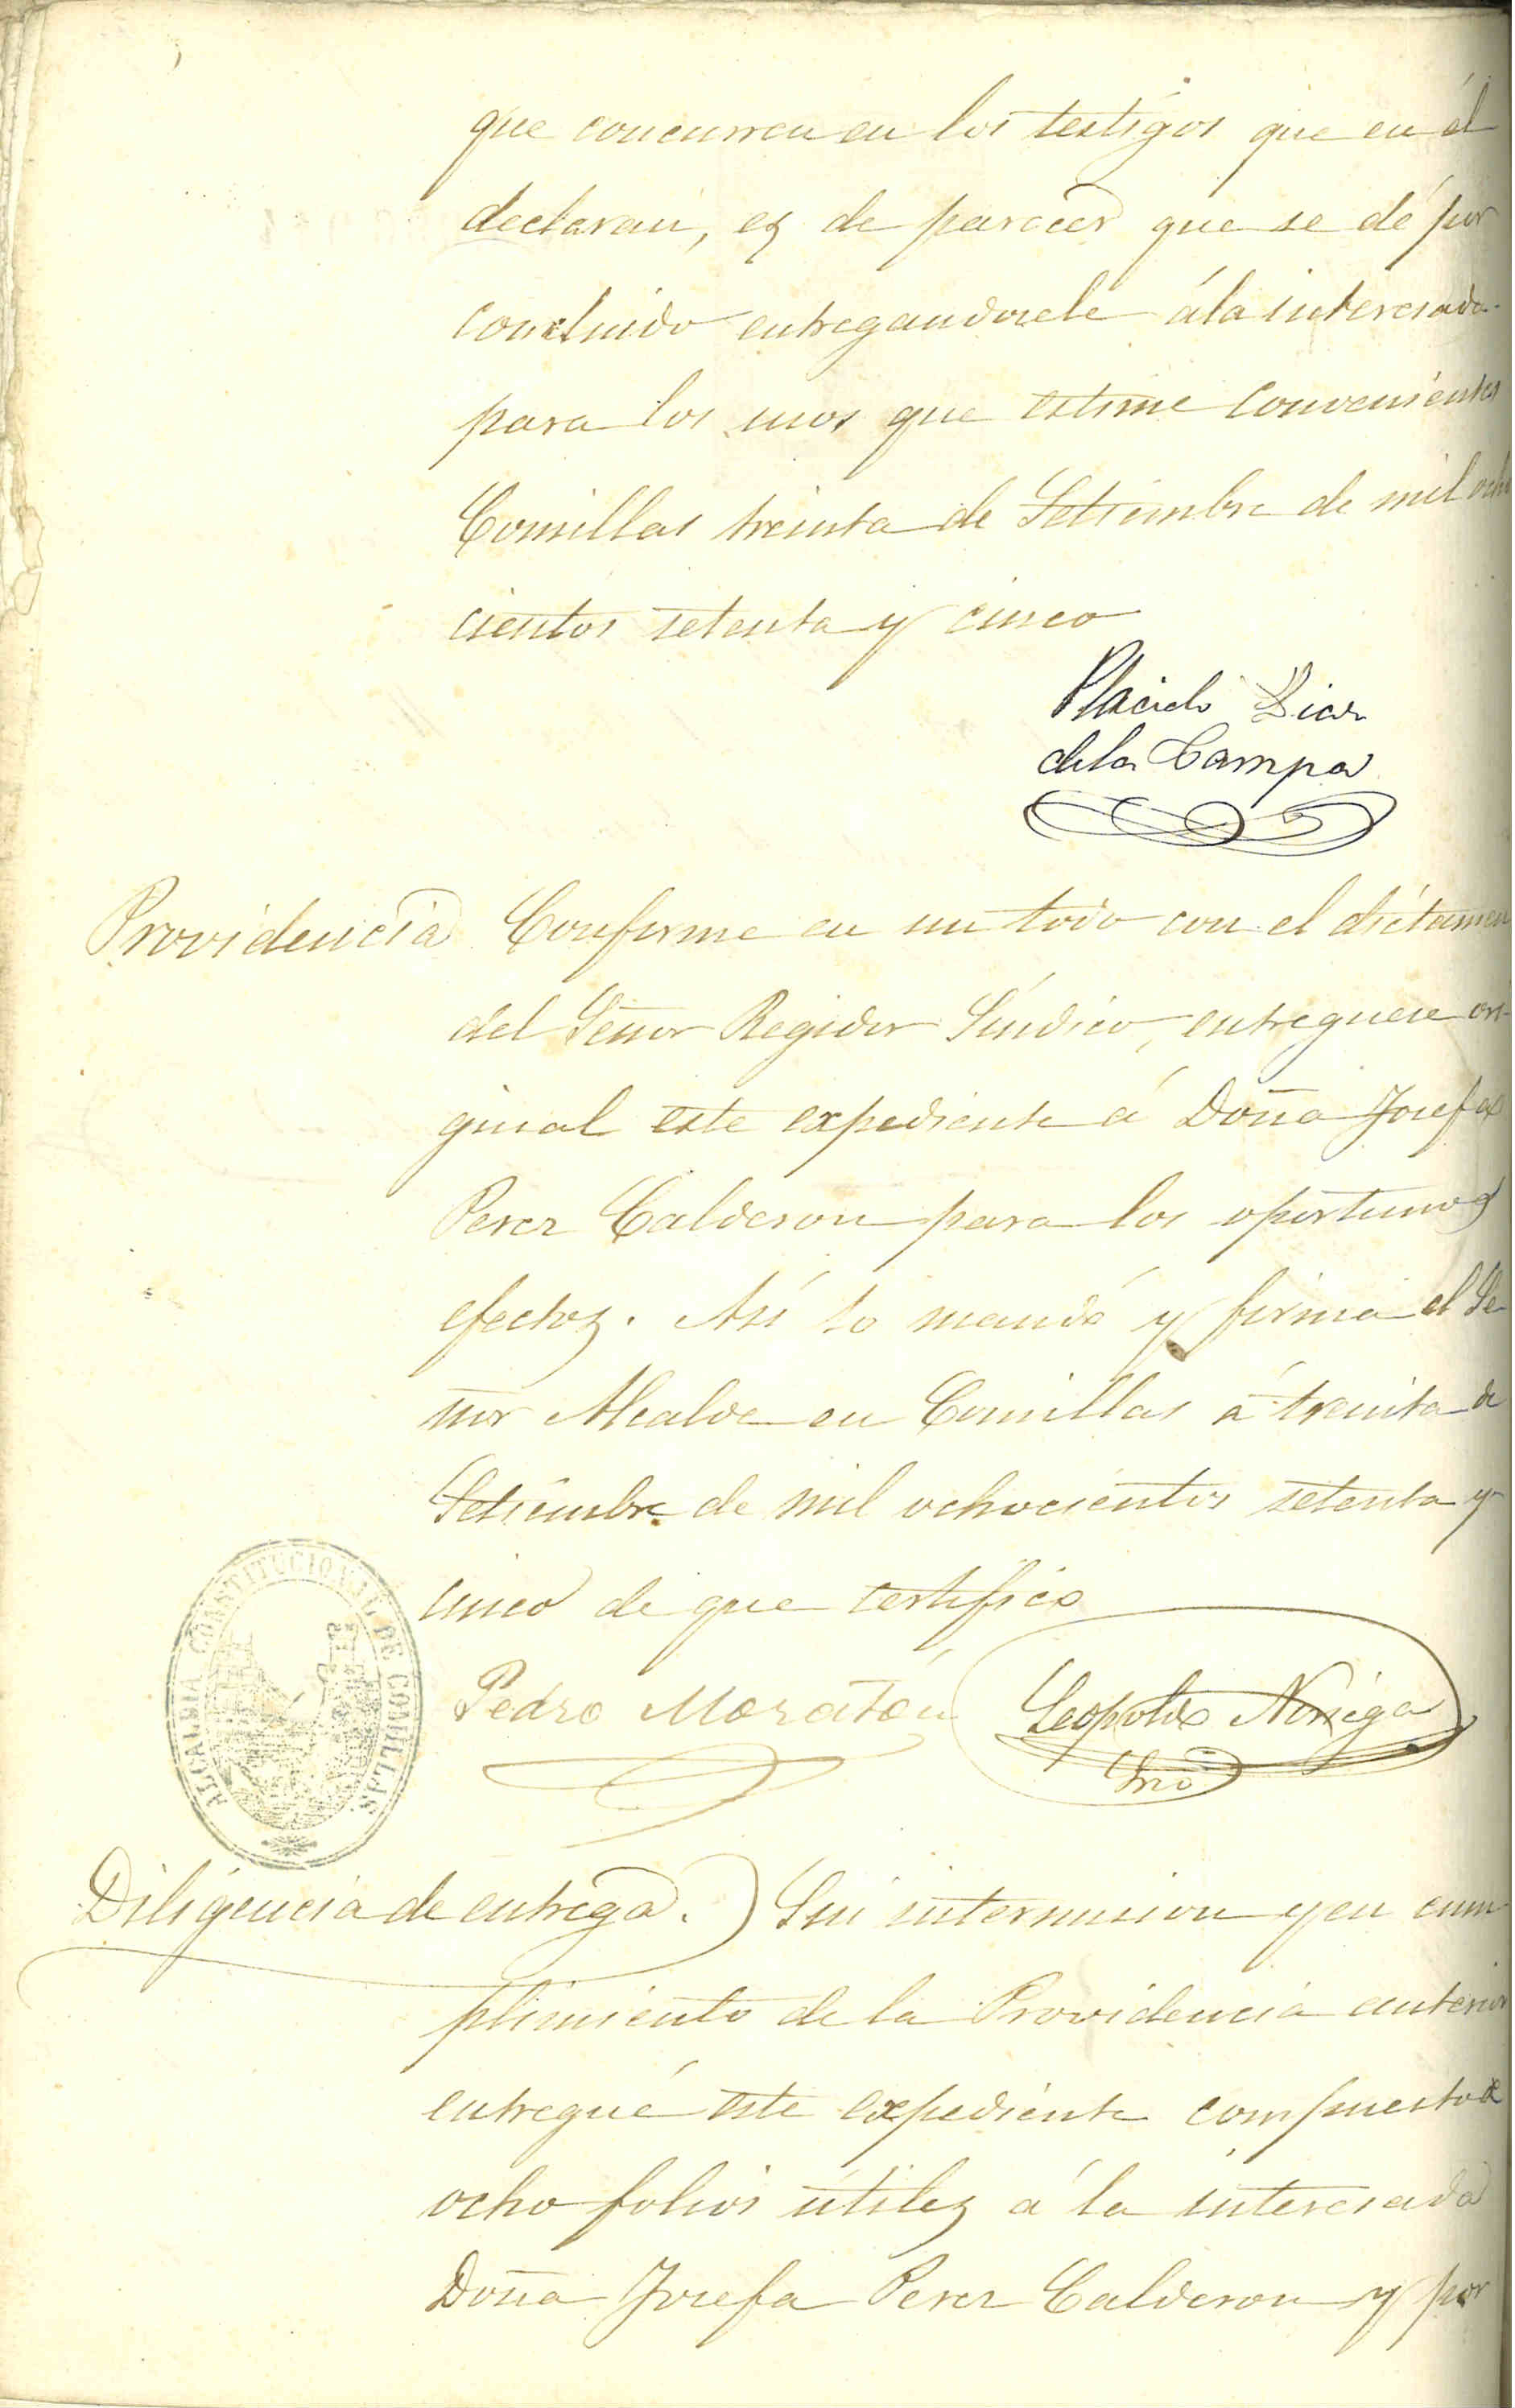 que concurren en los testigos que en él
declaran, es de parecer que se dé por
concluido entregandosele á la interesada
para los usos que estime convenientes
Comillas treinta de Setiembre de mil ocho
cientos setenta y cinco
Placido Diaz
de la Campa
Providencia Conforme en un todo con el dictamen
del Señor Regidor Síndico, entreguese ori-
ginal este expediente á Doña Josefa
Perez Calderon para los oportunos
efectos. Así lo mandó y firma el Se
ñor Alcalde en Comillas á treinta de
Setiembre de mil ochocientos setenta y
cinco de que certifico
ALCALDIA CONSTITUCIONAL DE COMILLAS
Pedro Moratón Leopoldo Noriega
Srio
Diligencia de entrega.) Sin intermision y en cum
plimiento de la Providencia anterior
entregué este expediente compuesto de
ocho folios útiles á la interesada
Doña Josefa Perez Calderon y por